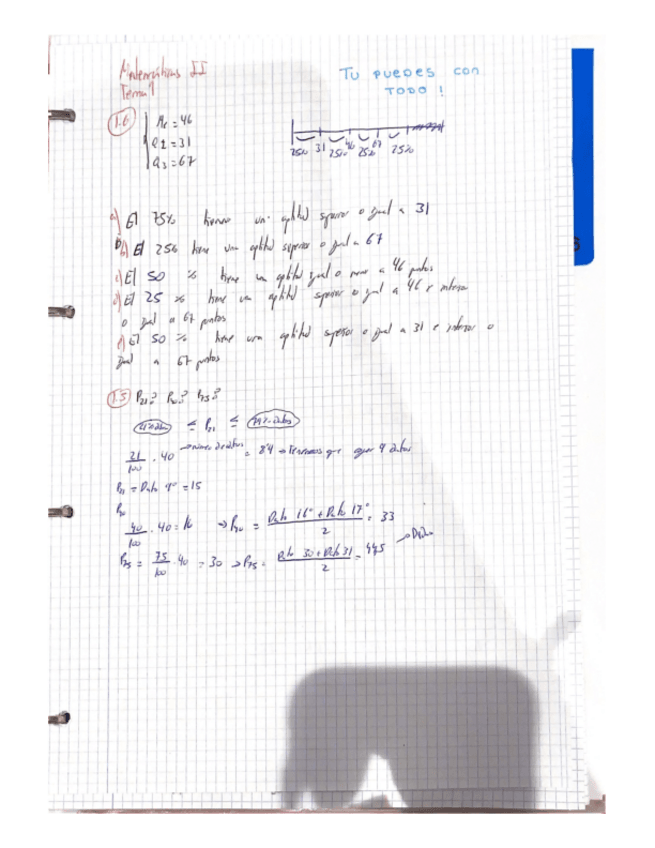 Matemáticas II
Tema 1
TU PUEDES CON
TODO !
1.6
Me = 46
Q1 = 31
Q3 = 67
25% 31 25% 46 25% 67 25%
a) El 75% tienen un aptitud superior o igual a 31
b) El 25% tiene una aptitud superior o igual a 67
c) El 50 % tiene una aptitud igual o menor a 46 puntos
d) El 25 % tiene una aptitud superior o igual a 46 e inferior
o igual a 67 puntos
e) El 50 % tiene una aptitud superior o igual a 31 e inferior o
igual a 67 puntos
1.5 P21? P40? P75?
≤ P21 ≤
21/100 · 40 → número de datos = 8'4 → Tenemos que coger 9 datos
P21 = Dato 9º = 15
P40
40/100 · 40 = 16 → P40 = Dato 16º + Dato 17º / 2 = 33
P75 = 75/100 · 40 = 30 → P75 = Dato 30 + Dato 31 / 2 = 44,5